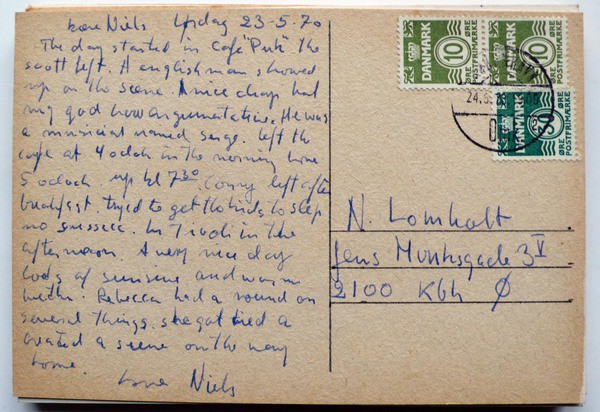 Kære Niels Lørdag 23-5.70
The day started in Café "Puk" the
scott left. A english man showed
up on the scene. A nice chap but
my god how argumentative. He was
a musician named serge. left the
cafe at 4 oclock in the morning home
5 oclock. up kl 7³⁰. Conny left after
breakfast. tryed to get the kids to sleep
no sussecc. In Tivoli in the
afternoon. A very nice day
lods of sunsine and warm
Rebecca had a round on
several things. she got tied a
created a scene on the way
home.
Love Niels
DANMARK 10 ØRE POSTFRIMÆRKE
DANMARK 10 ØRE POSTFRIMÆRKE
DANMARK ØRE POSTFRIMÆRKE
24.5.
N. Lomholt
Jens Munksgade 3 V
2100 Kbh Ø